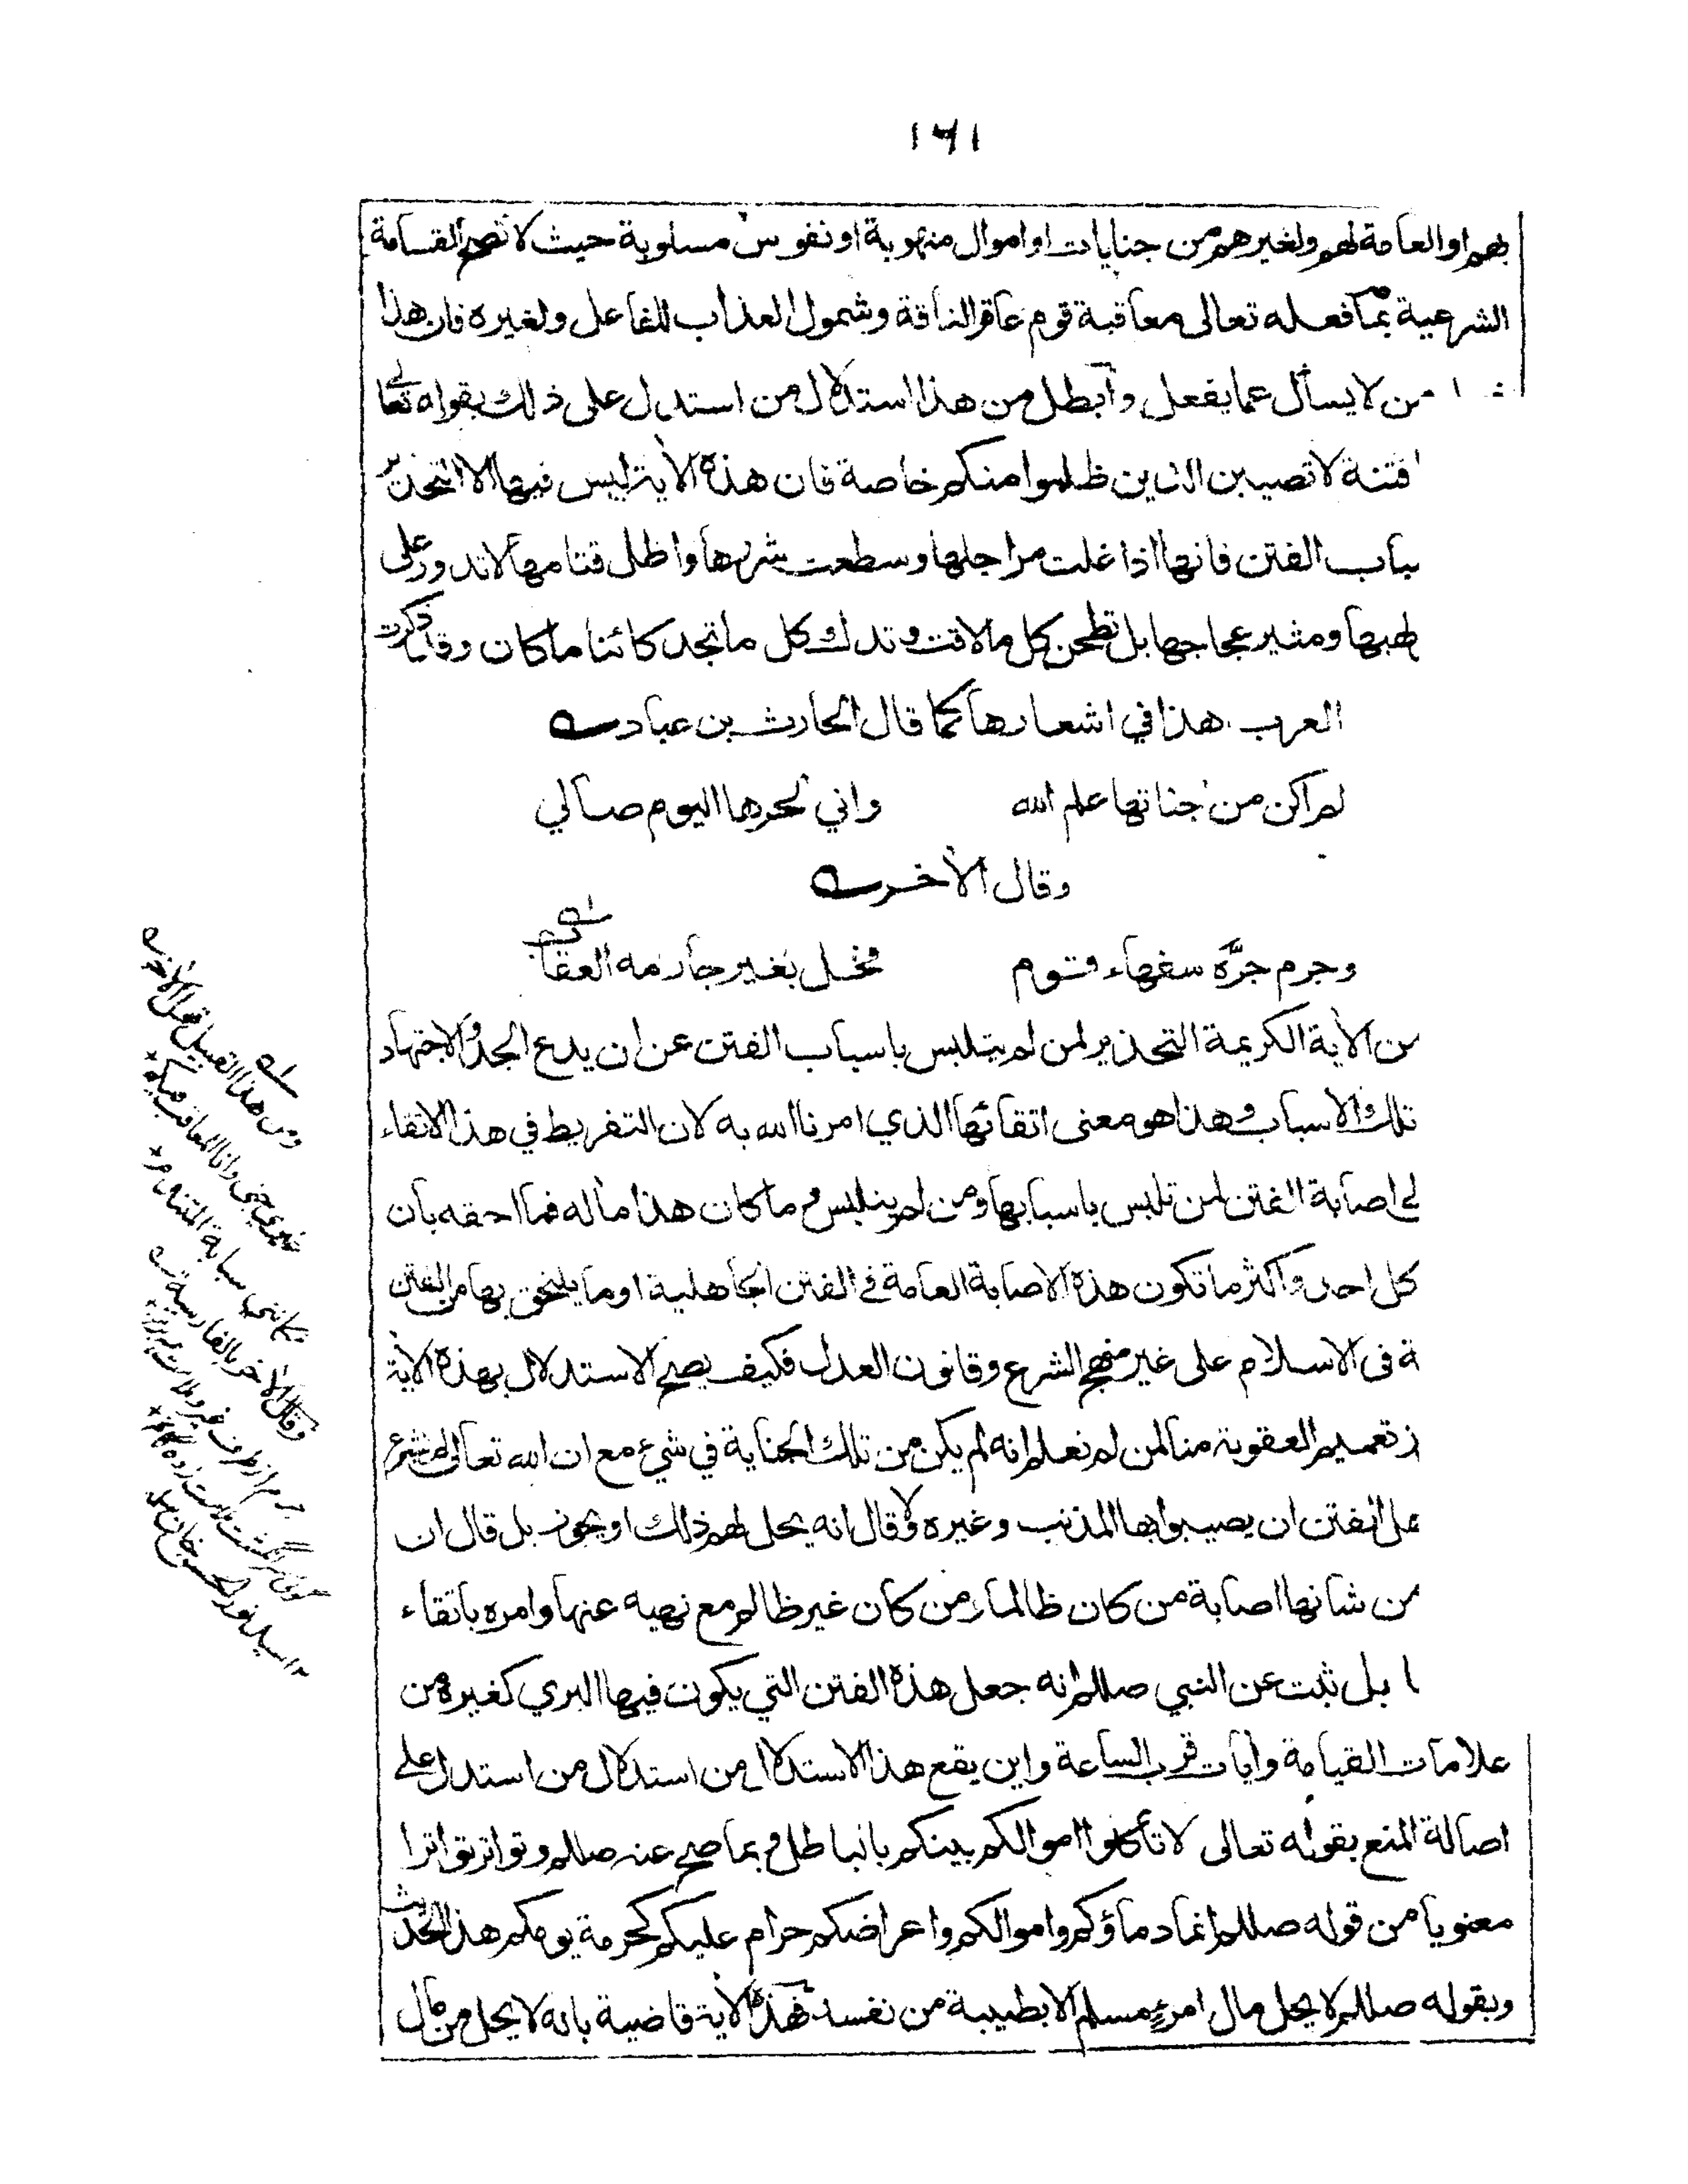 ١٦١
بهم او العامة لهم ولغيرهم من جنايات او اموال منهوبة او نفوس مسلوبة حيث لا تصح القسامة
الشرعية بما فعله تعالى معاقبة قوم عاقر الناقة وشمول العذاب للفاعل ولغيره فان هذا
من لا يسأل عما يفعل وأبطل من هذا استدلال من استدل على ذلك بقوله تعالى
فتنة لا تصيبن الذين ظلموا منكم خاصة فان هذه الأية ليس فيها الا التحذير
باب الفتن فانها اذا غلت مراجلها وسطعت شررها واظل قتامها لا تدور على
لهبها ومثير عجاجها بل تطحن كل ما لاقت وتدك كل ما تجد كائنا ما كان وقد ذكرت
العرب هذا في اشعارها كما قال الحارث بن عباد
لم اكن من جناتها علم الله واني لحرها اليوم صالي
وقال الأخر
وجرم جرّه سفهاء قوم فحل بغير جارمه العقاب
من الأية الكريمة التحذير لمن لم يتلبس باسباب الفتن عن ان يدع الجد والاجتهاد
تلك الاسباب وهذا هو معنى اتقائها الذي امرنا الله به لان التفريط في هذا الاتقاء
لى اصابة الفتن لمن تلبس باسبابها ومن لم يتلبس وما كان هذا مأله فما احقه بأن
كل احد واكثر ما تكون هذه الاصابة العامة في الفتن الجاهلية او ما يلتحق بها من الفتن
ة فى الاسلام على غير منهج الشرع وقانون العدل فكيف يصح الاستدلال بهذه الأية
ز تعميم العقوبة منا لمن لم نعلم انه لم يكن من تلك الجناية في شيء مع ان الله تعالى لم يشرع
هل الفتن ان يصيبوا بها المذنب وغيره ولا قال انه يحل لهم ذلك او يجوز بل قال ان
من شانها اصابة من كان ظالما ومن كان غير ظالم مع نهيه عنها وامره باتقاء
ا بل ثبت عن النبي صللم انه جعل هذه الفتن التي يكون فيها البري كغيره من
علامات القيامة وأيات قرب الساعة واين يقع هذا الاستدلال من استدلال من استدل على
اصالة المنع بقوله تعالى لا تأكلوا اموالكم بينكم بالباطل وبما صح عنه صللم وتواتر تواترا
معنويا من قوله صللم انما دماؤكم واموالكم واعراضكم حرام عليكم كحرمة يومكم هذا الحديث
وبقوله صللم لا يحل مال امرءٍ مسلم الا بطيبة من نفسه فهذه الأية قاضية بانه لا يحل من مال
ومن هذا القبيل قول الاخر
غيري جنى وانا المعاقب فيكم
فكأنني سبابة المتندم
وقال الأخر بالفارسية
سيد نور الحسن خان